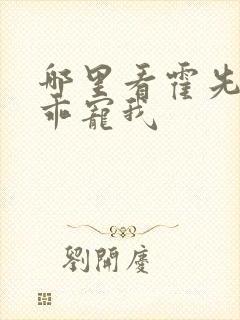 哪里看霍先
乖寵我
劉開慶